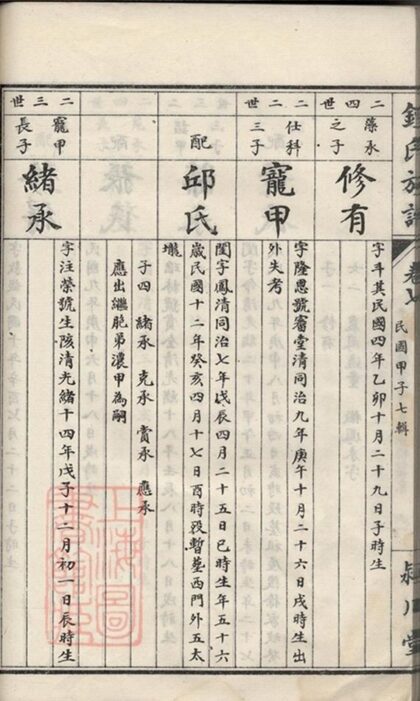 鍾氏族譜
卷七
民國甲子七輯
潁川堂
二四世
藻承
之子
修有
字斗其民國四年乙卯十月二十九日子時生
二二世
仕科
三子
寵甲
字隆恩號審堂清同治九年庚午十月二十六日戌時生出
外失考
配
邱氏
閨字鳳清同治七年戊辰四月二十五日巳時生年五十六
歲民國十二年癸亥四月十七日酉時歿暫塟西門外五太
壠
子四 緒承 克承 賞承 應承
應出繼胞弟濃甲為嗣
二三世
寵甲
長子
緒承
字注榮號生陔清光緒十四年戊子十二月初一日辰時生
上海圖